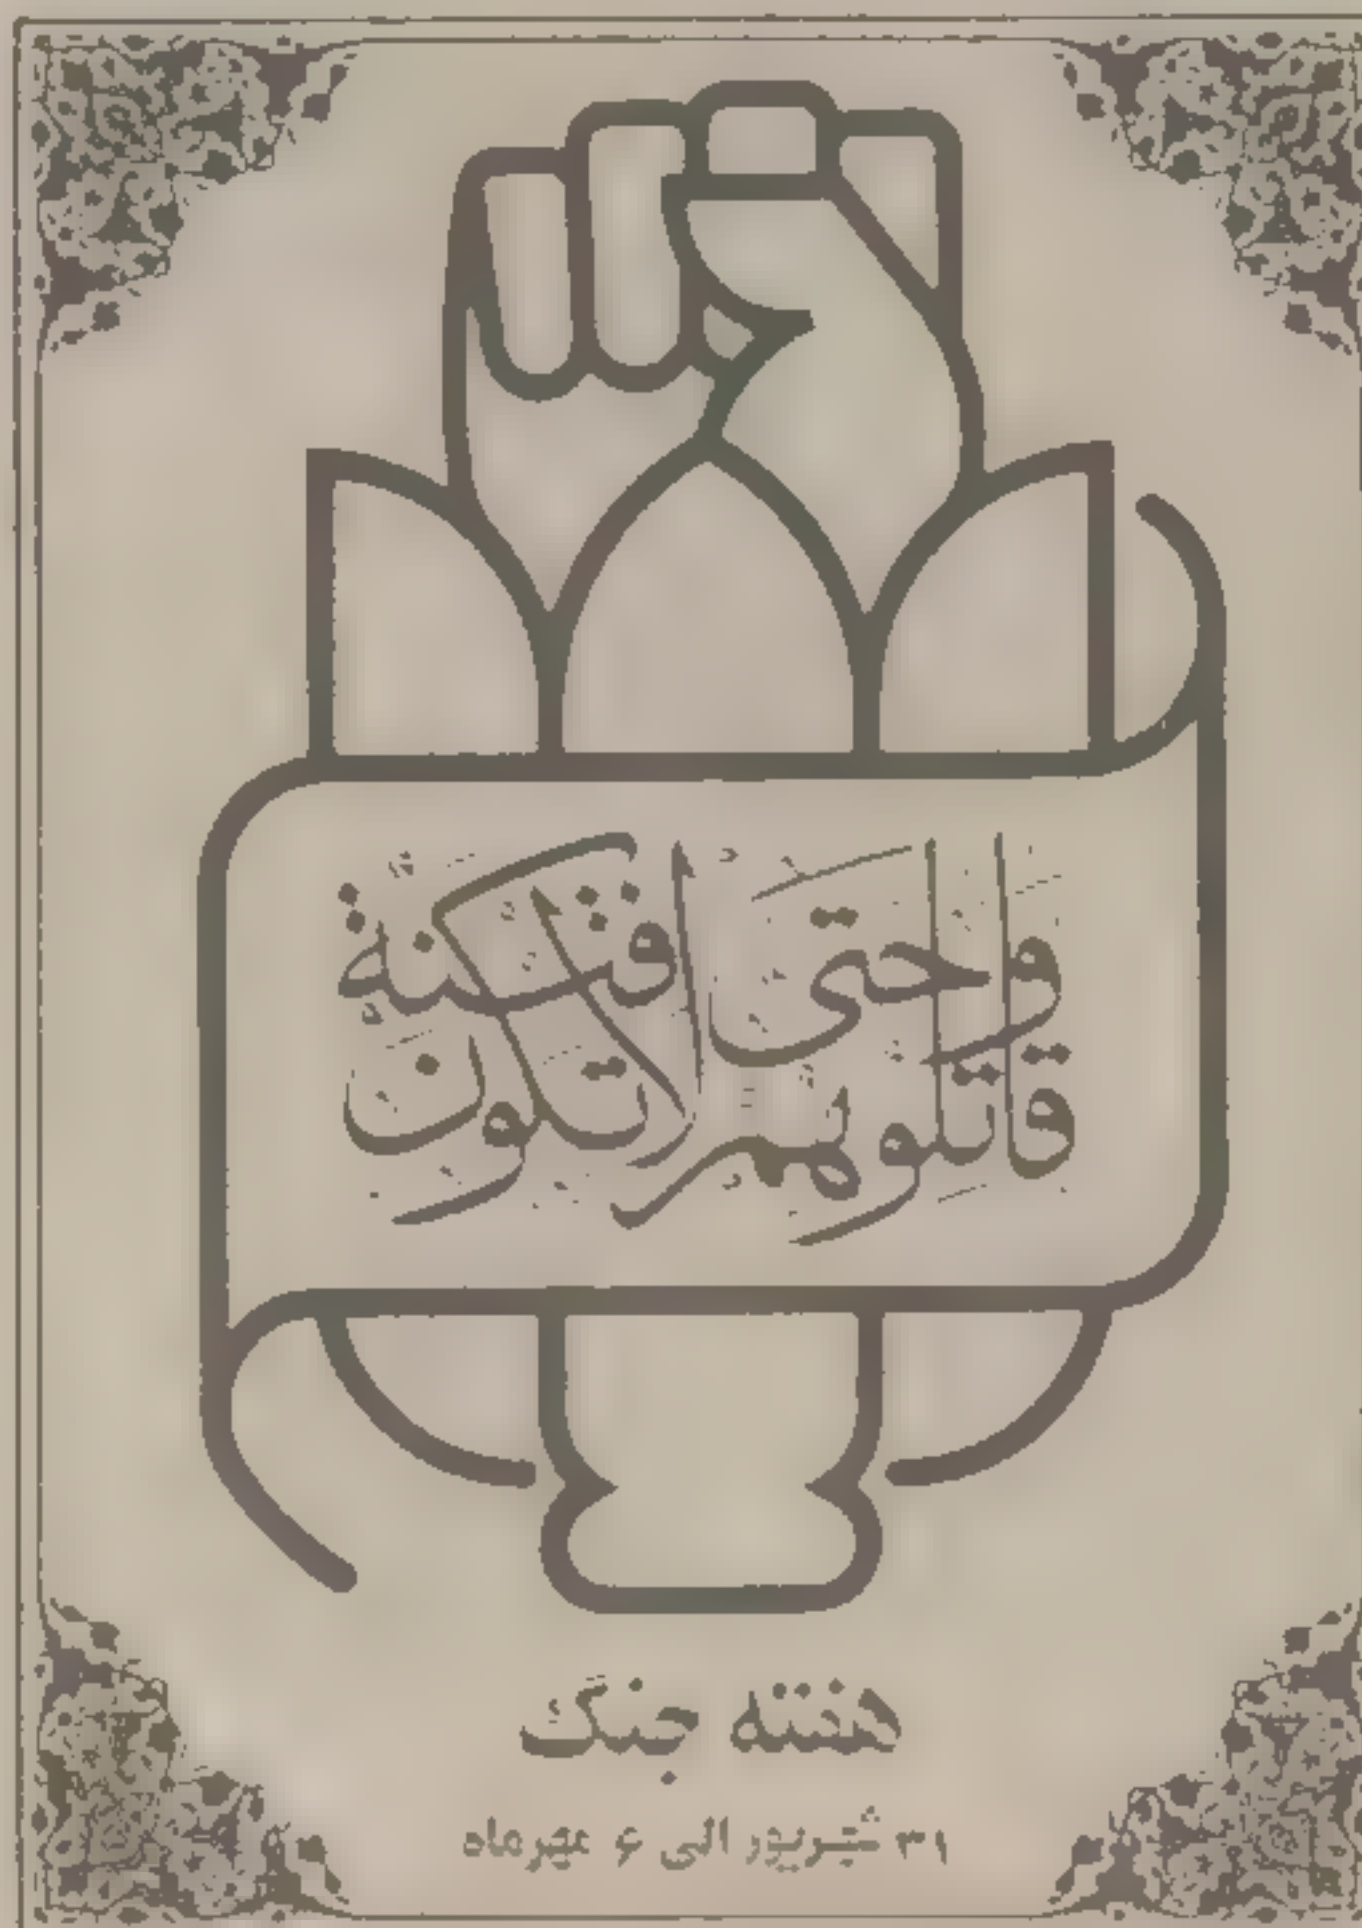 وقاتلوهم حتى لا تكون فتنة
هفته جنگ
۳۱ شهریور الی ۶ مهرماه